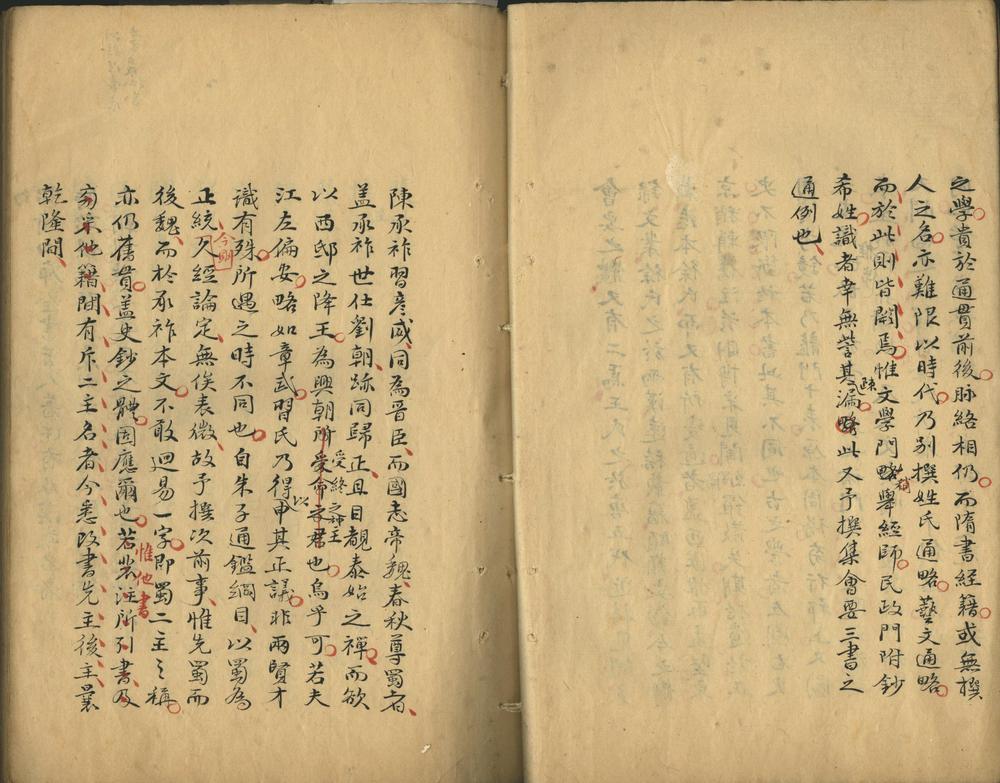 之學貴於通貫前後脉絡相仍而隋書經籍或無撰
人之名亦難限以時代乃別撰姓氏通略藝文通略
而於此則皆闕焉惟文學門略稍舉經師民政門附鈔
希姓識者幸無訾其漏略疎此又予撰集會要三書之
通例也
陳承祚習彥威同為晉臣而國志帝魏春秋尊蜀者
蓋承祚世仕劉朝跡同歸正且目覩泰始之禪而欲
以西邸之降王為興朝所受命之君也受終之神主烏乎可若夫
江左偏安略如章武習氏乃得以申其正議非兩賢才
識有殊所遇之時不同也自朱子通鑑綱目以蜀為
正統又今朙經論定無俟表微故予撰次前事惟先蜀而
後魏而於承祚本文不敢迴易一字即蜀二主之稱
亦仍舊貫蓋史鈔之體固應爾也若裴注所引書及
惟他書
旁采他籍閒有斥二主名者今悉改書先主後主曩
乾隆間